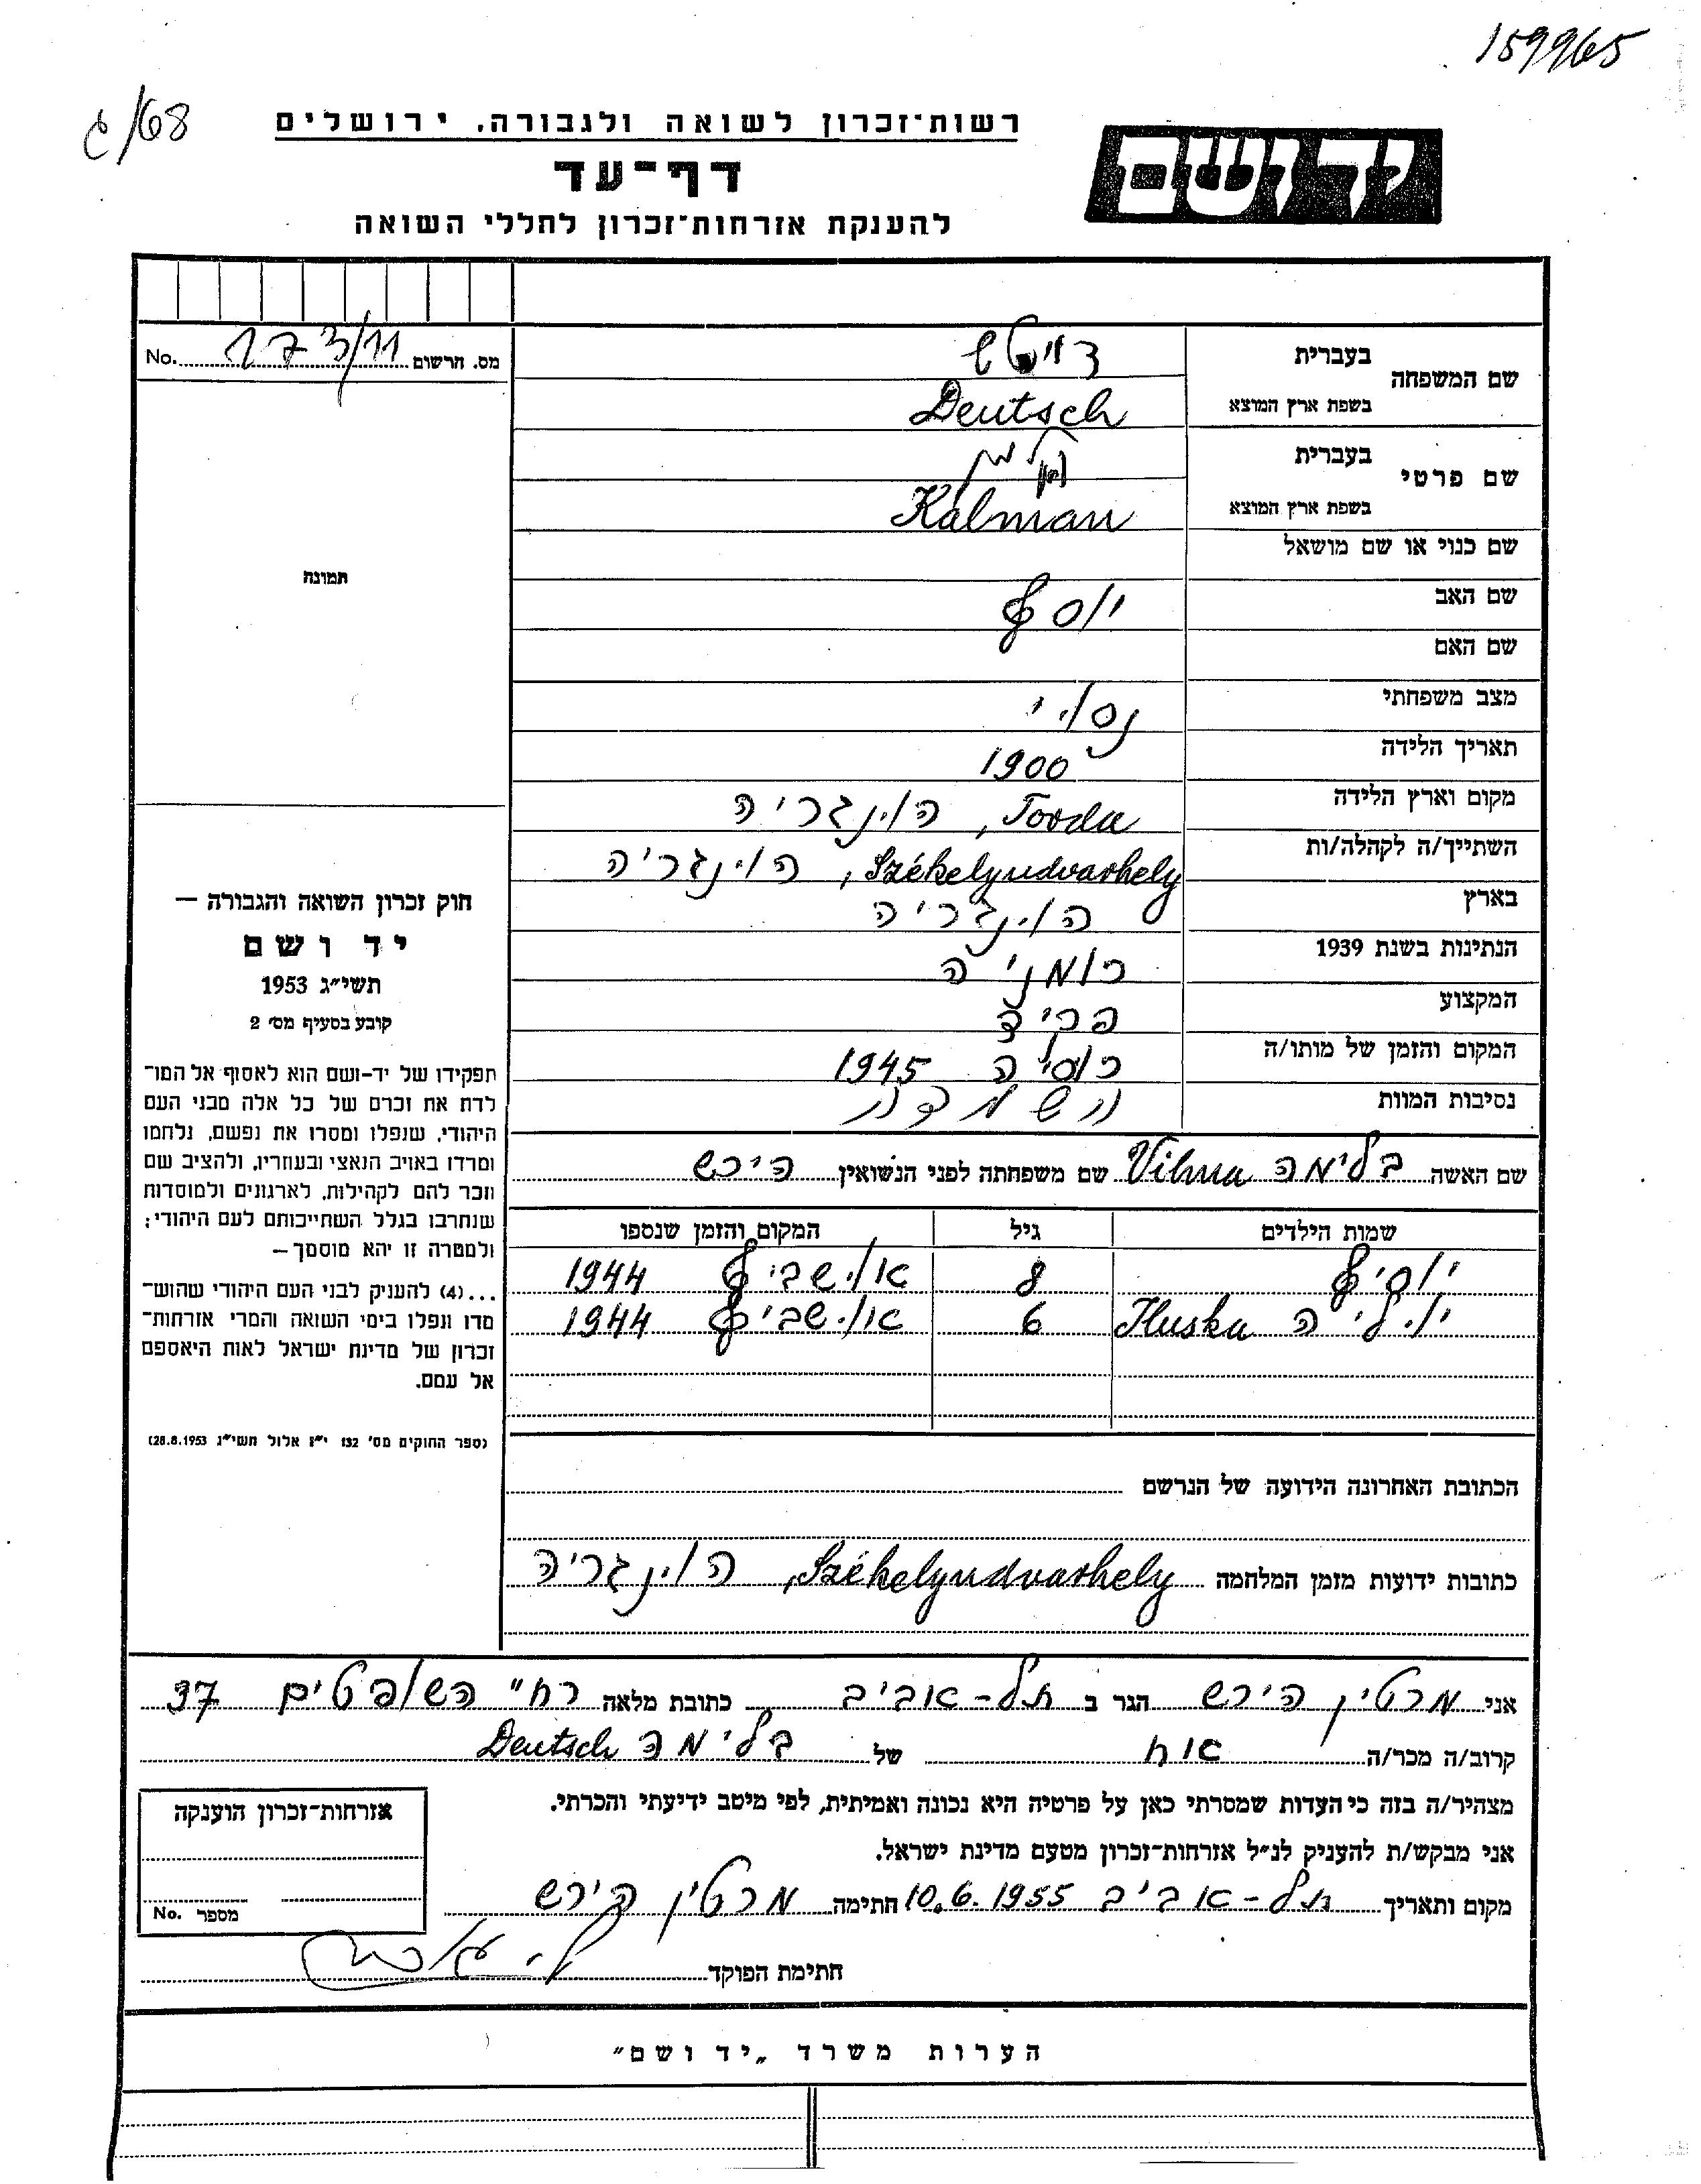 159965
ג/68
רשות־זכרון לשואה ולגבורה, ירושלים
יד ושם
דף־עד
להענקת אזרחות־זכרון לחללי השואה
מס. הרשום 173/11 No.
שם המשפחה
בעברית דויטש
בשפת ארץ המוצא Deutsch
שם פרטי
בעברית קלמן
בשפת ארץ המוצא Kálmán
שם כנוי או שם מושאל
שם האב יוסף
שם האם
מצב משפחתי נסוי
תאריך הלידה 1900
מקום וארץ הלידה Torda, הונגריה
השתייך/ה לקהלה/ות Székelyudvarhely, הונגריה
בארץ הונגריה
הנתינות בשנת 1939 רומניה
המקצוע פקיד
המקום והזמן של מותו/ה רוסיה 1945
נסיבות המוות השמדה
שם האשה וילמה Vilma שם משפחתה לפני הנשואין הירש
שמות הילדים גיל המקום והזמן שנספו
יוסיף 8 אושביץ 1944
יוליה Iluska 6 אושביץ 1944
הכתובת האחרונה הידועה של הנרשם
כתובות ידועות מזמן המלחמה Székelyudvarhely, הונגריה
תמונה
חוק זכרון השואה והגבורה —
יד ושם
תשי״ג 1953
קובע בסעיף מס׳ 2
תפקידו של יד-ושם הוא לאסוף אל המו־
לדת את זכרם של כל אלה מבני העם
היהודי, שנפלו ומסרו את נפשם, נלחמו
ומרדו באויב הנאצי ובעוזריו, ולהציב שם
וזכר להם לקהילות, לארגונים ולמוסדות
שנחרבו בגלל השתייכותם לעם היהודי;
ולמטרה זו יהא מוסמך —
...(4) להעניק לבני העם היהודי שהוש־
מדו ונפלו בימי השואה והמרי אזרחות־
זכרון של מדינת ישראל לאות היאספם
אל עמם.
(ספר החוקים מס׳ 132 י״ז אלול תשי״ג 28.8.1953)
אני מרטין הירש הגר ב תל-אביב כתובת מלאה רח" השופטים 37
קרוב/ה מכר/ה אח של וילמה Deutsch
מצהיר/ה בזה כי העדות שמסרתי כאן על פרטיה היא נכונה ואמיתית, לפי מיטב ידיעתי והכרתי.
אני מבקש/ת להעניק לנ״ל אזרחות־זכרון מטעם מדינת ישראל.
מקום ותאריך תל-אביב 10.6.1955 חתימה מרטין הירש
חתימת הפוקד
אזרחות־זכרון הוענקה
מספר No.
הערות משרד „יד ושם"